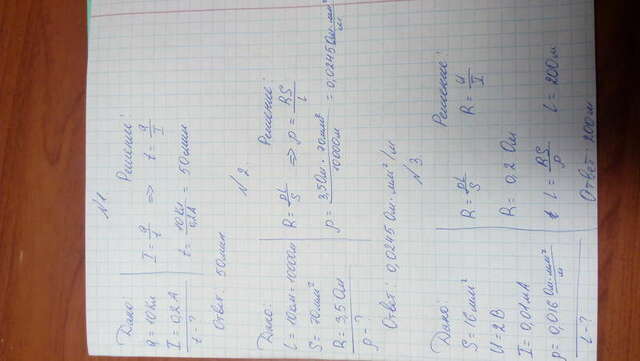 №1.
Дано:
q = 10 Кл
I = 0,2 А
t - ?
Решение:
I = q/t => t = q/I
t = 10 Кл/0,2 А = 50 мин
Ответ: 50 мин
№2.
Дано:
l = 10 км = 10000 м
S = 70 мм²
R = 3,5 Ом
ρ - ?
Решение:
R = ρL/S => ρ = RS/l
ρ = 3,5 Ом · 70 мм²/10000 м = 0,0245 Ом·мм²/м
Ответ: 0,0245 Ом·мм²/м
№3.
Дано:
S = 16 мм²
U = 2 В
I = 0,01 мА
ρ = 0,016 Ом·мм²/м
l - ?
Решение:
R = ρL/S
R = U/I
R = 0,2 Ом
l = RS/ρ
l = 200 м
Ответ 200 м